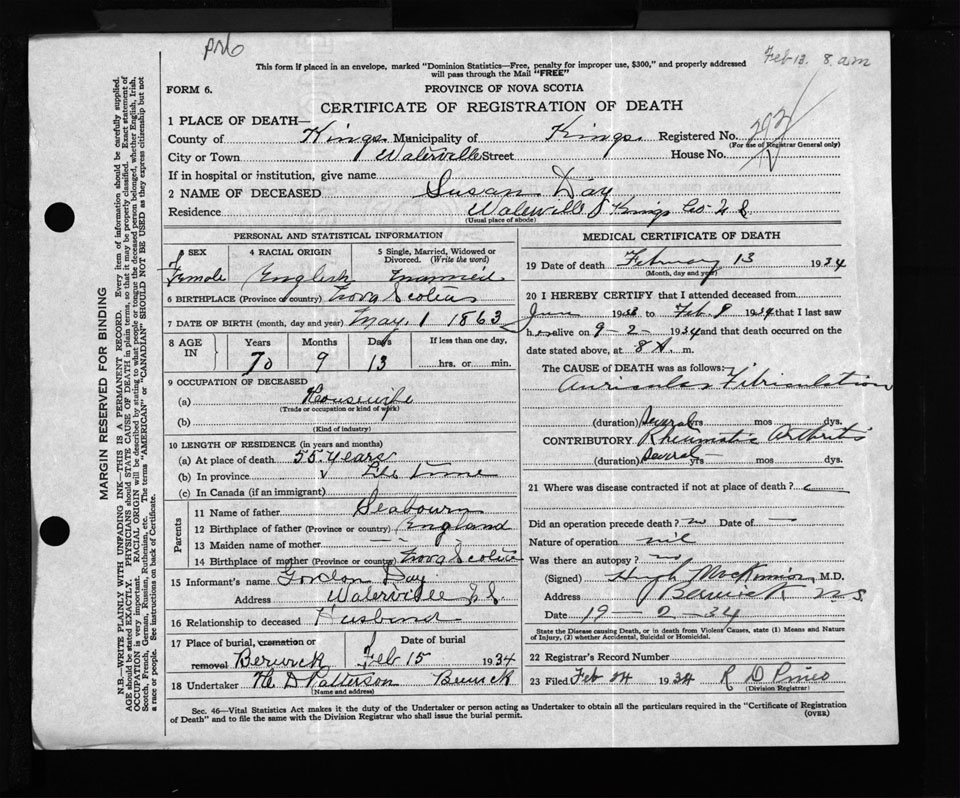 Feb 13. 8 a m
This form if placed in an envelope, marked "Dominion Statistics—Free, penalty for improper use, $300," and properly addressed
will pass through the Mail "FREE"
FORM 6.
PROVINCE OF NOVA SCOTIA
CERTIFICATE OF REGISTRATION OF DEATH
1 PLACE OF DEATH—
County of Kings Municipality of Kings Registered No.
(For use of Registrar General only)
City or Town Waterville Street House No.
If in hospital or institution, give name
2 NAME OF DECEASED Susan Day
Residence Waterville Kings Co. N S
(Usual place of abode)
PERSONAL AND STATISTICAL INFORMATION
3 SEX 4 RACIAL ORIGIN 5 Single, Married, Widowed or Divorced. (Write the word)
Female English Married
6 BIRTHPLACE (Province or country) Nova Scotia
7 DATE OF BIRTH (month, day and year) May 1 1863
8 AGE IN Years Months Days If less than one day,
70 9 13 hrs. or min.
9 OCCUPATION OF DECEASED
(a) Housewife
(Trade or occupation or kind of work)
(b)
(Kind of industry)
10 LENGTH OF RESIDENCE (in years and months)
(a) At place of death 55 years
(b) In province Life Time
(c) In Canada (if an immigrant)
Parents
11 Name of father Seabourn
12 Birthplace of father (Province or country) England
13 Maiden name of mother — —
14 Birthplace of mother (Province or country) Nova Scotia
15 Informant's name Gordon Day
Address Waterville N.S.
16 Relationship to deceased Husband
17 Place of burial, cremation or removal Berwick Date of burial Feb 15 1934
18 Undertaker H D Patterson Berwick
(Name and address)
MEDICAL CERTIFICATE OF DEATH
19 Date of death February 13 1934
(Month, day and year)
20 I HEREBY CERTIFY that I attended deceased from
June 1933 to Feb 9 1934 that I last saw
h er alive on 9-2- 1934 and that death occurred on
date stated above, at 8 A. m.
The CAUSE OF DEATH was as follows:
Auricular Fibrillation
(duration) Several yrs mos dys.
CONTRIBUTORY Rheumatic Arthritis
(duration) Several yrs mos dys.
21 Where was disease contracted if not at place of death?
Did an operation precede death? no Date of —
Nature of operation nil
Was there an autopsy? no
(Signed) Hugh MacKinnon, M.D.
Address Berwick N.S.
Date 19-2-34
State the Disease causing Death, or in death from Violent Causes, state (1) Means and Nature
of Injury, (2) whether Accidental, Suicidal or Homicidal.
22 Registrar's Record Number
23 Filed Feb 24 1934 R D Pineo
(Division Registrar)
Sec. 46—Vital Statistics Act makes it the duty of the Undertaker or person acting as Undertaker to obtain all the particulars required in the "Certificate of Registration
of Death" and to file the same with the Division Registrar who shall issue the burial permit.
(OVER)
MARGIN RESERVED FOR BINDING
N.B.—WRITE PLAINLY WITH UNFADING INK—THIS IS A PERMANENT RECORD. Every item of information should be carefully supplied.
AGE should be stated EXACTLY. PHYSICIANS should STATE CAUSE OF DEATH in plain terms, so that it may be properly classified. Exact statement of
OCCUPATION is very important. RACIAL ORIGIN will be described by stating to what people or tongue the deceased person belonged, whether English, Irish,
Scotch, French, German, Russian, Ruthenian, etc. The terms "AMERICAN" or "CANADIAN" SHOULD NOT BE USED as they express citizenship but not
a race or people. See instructions on back of Certificate.